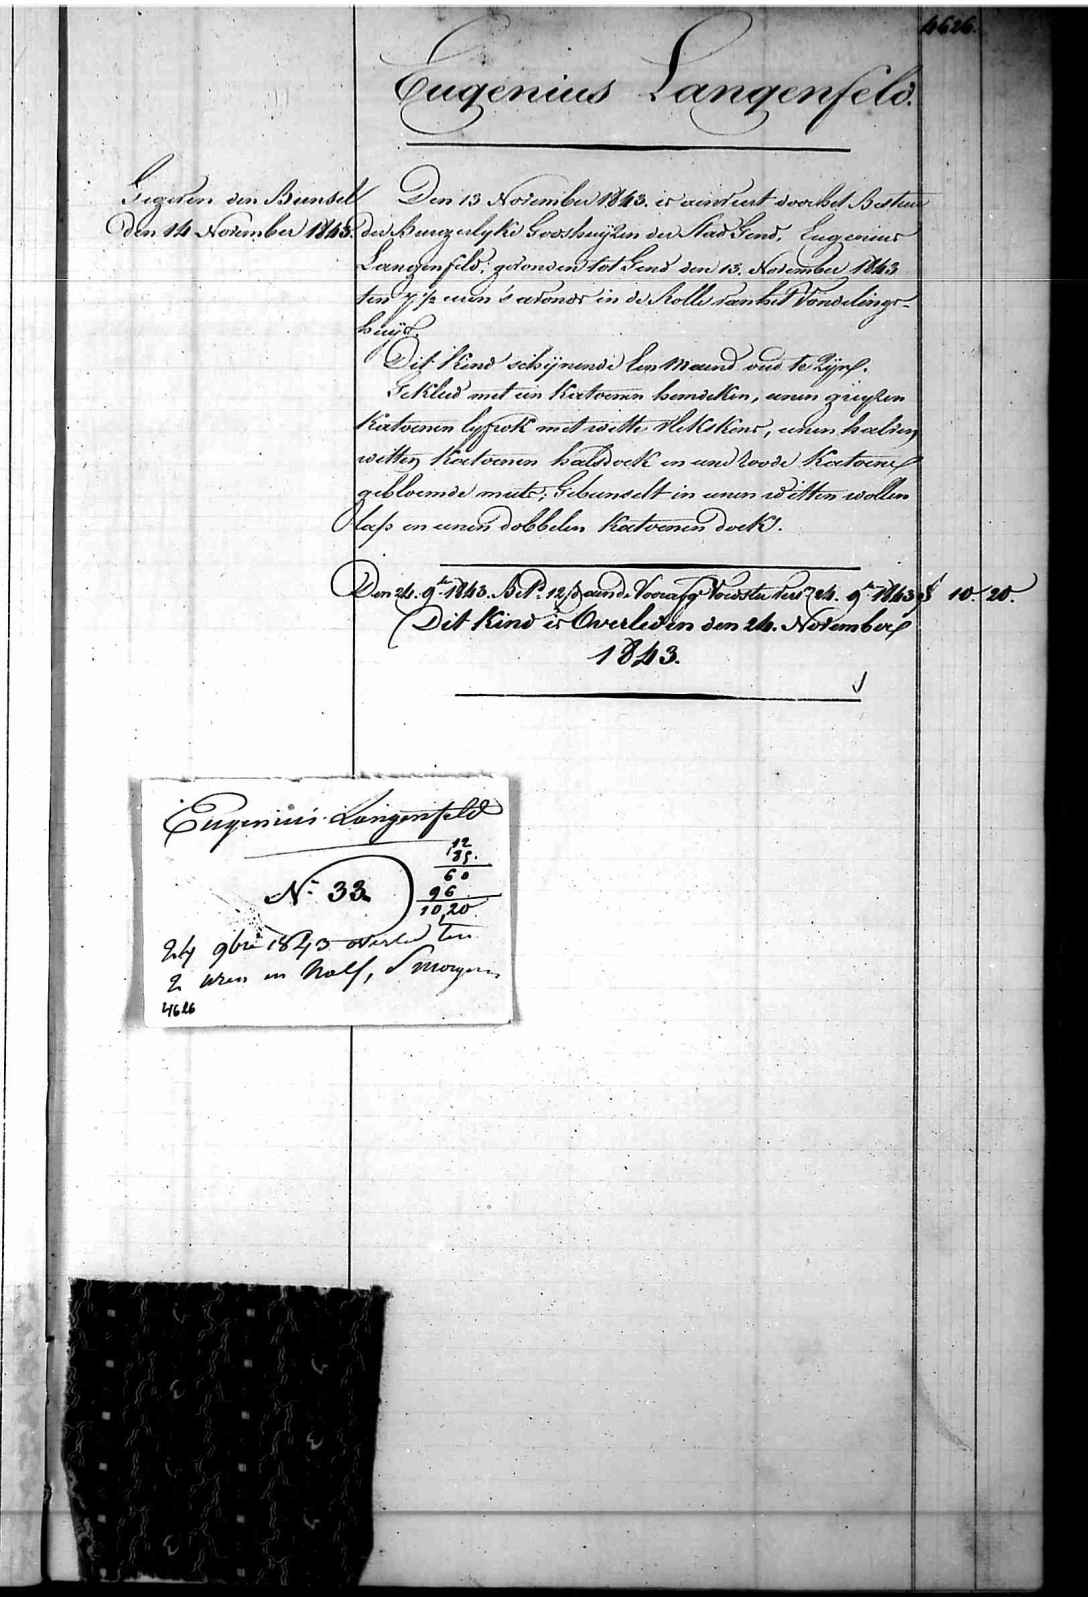 4626.
Eugenius Langenfeld.
Gegeven den Bunsel
den 14 November 1843.
Den 13 November 1843. is aenveert door het Bestuer
der Burgerlyke Godshuyzen der Stad Gend, Eugenius
Langenfeld, gevonden tot Gend den 13. November 1843
ten 7 1/2 uren 's avonds in de Rolle van het Vondelings-
huys.
Dit Kind schijnende Een Maend oud te Zijn.
Gekleed met een Katoenen hemdeken, eenen gryzen
Katoenen lyfrok met witte Plekskens, eenen halven
witten Katoenen halsdoek en eene roode Katoene
gebloemde muts; Gebunselt in eenen witten wollen
lap en eenen dobbelen Katoenen doek.
Den 24. 9r 1843. Bet. 12 aende Voedster 24. 9r 1843 10. 20.
Dit Kind is Overleden den 24. November
1843.
Eugenius Langenfeld
12
85.
60
96
10,20
No 33
24 9bre 1843 overled ten
2 uren en half, s'morgens
4626